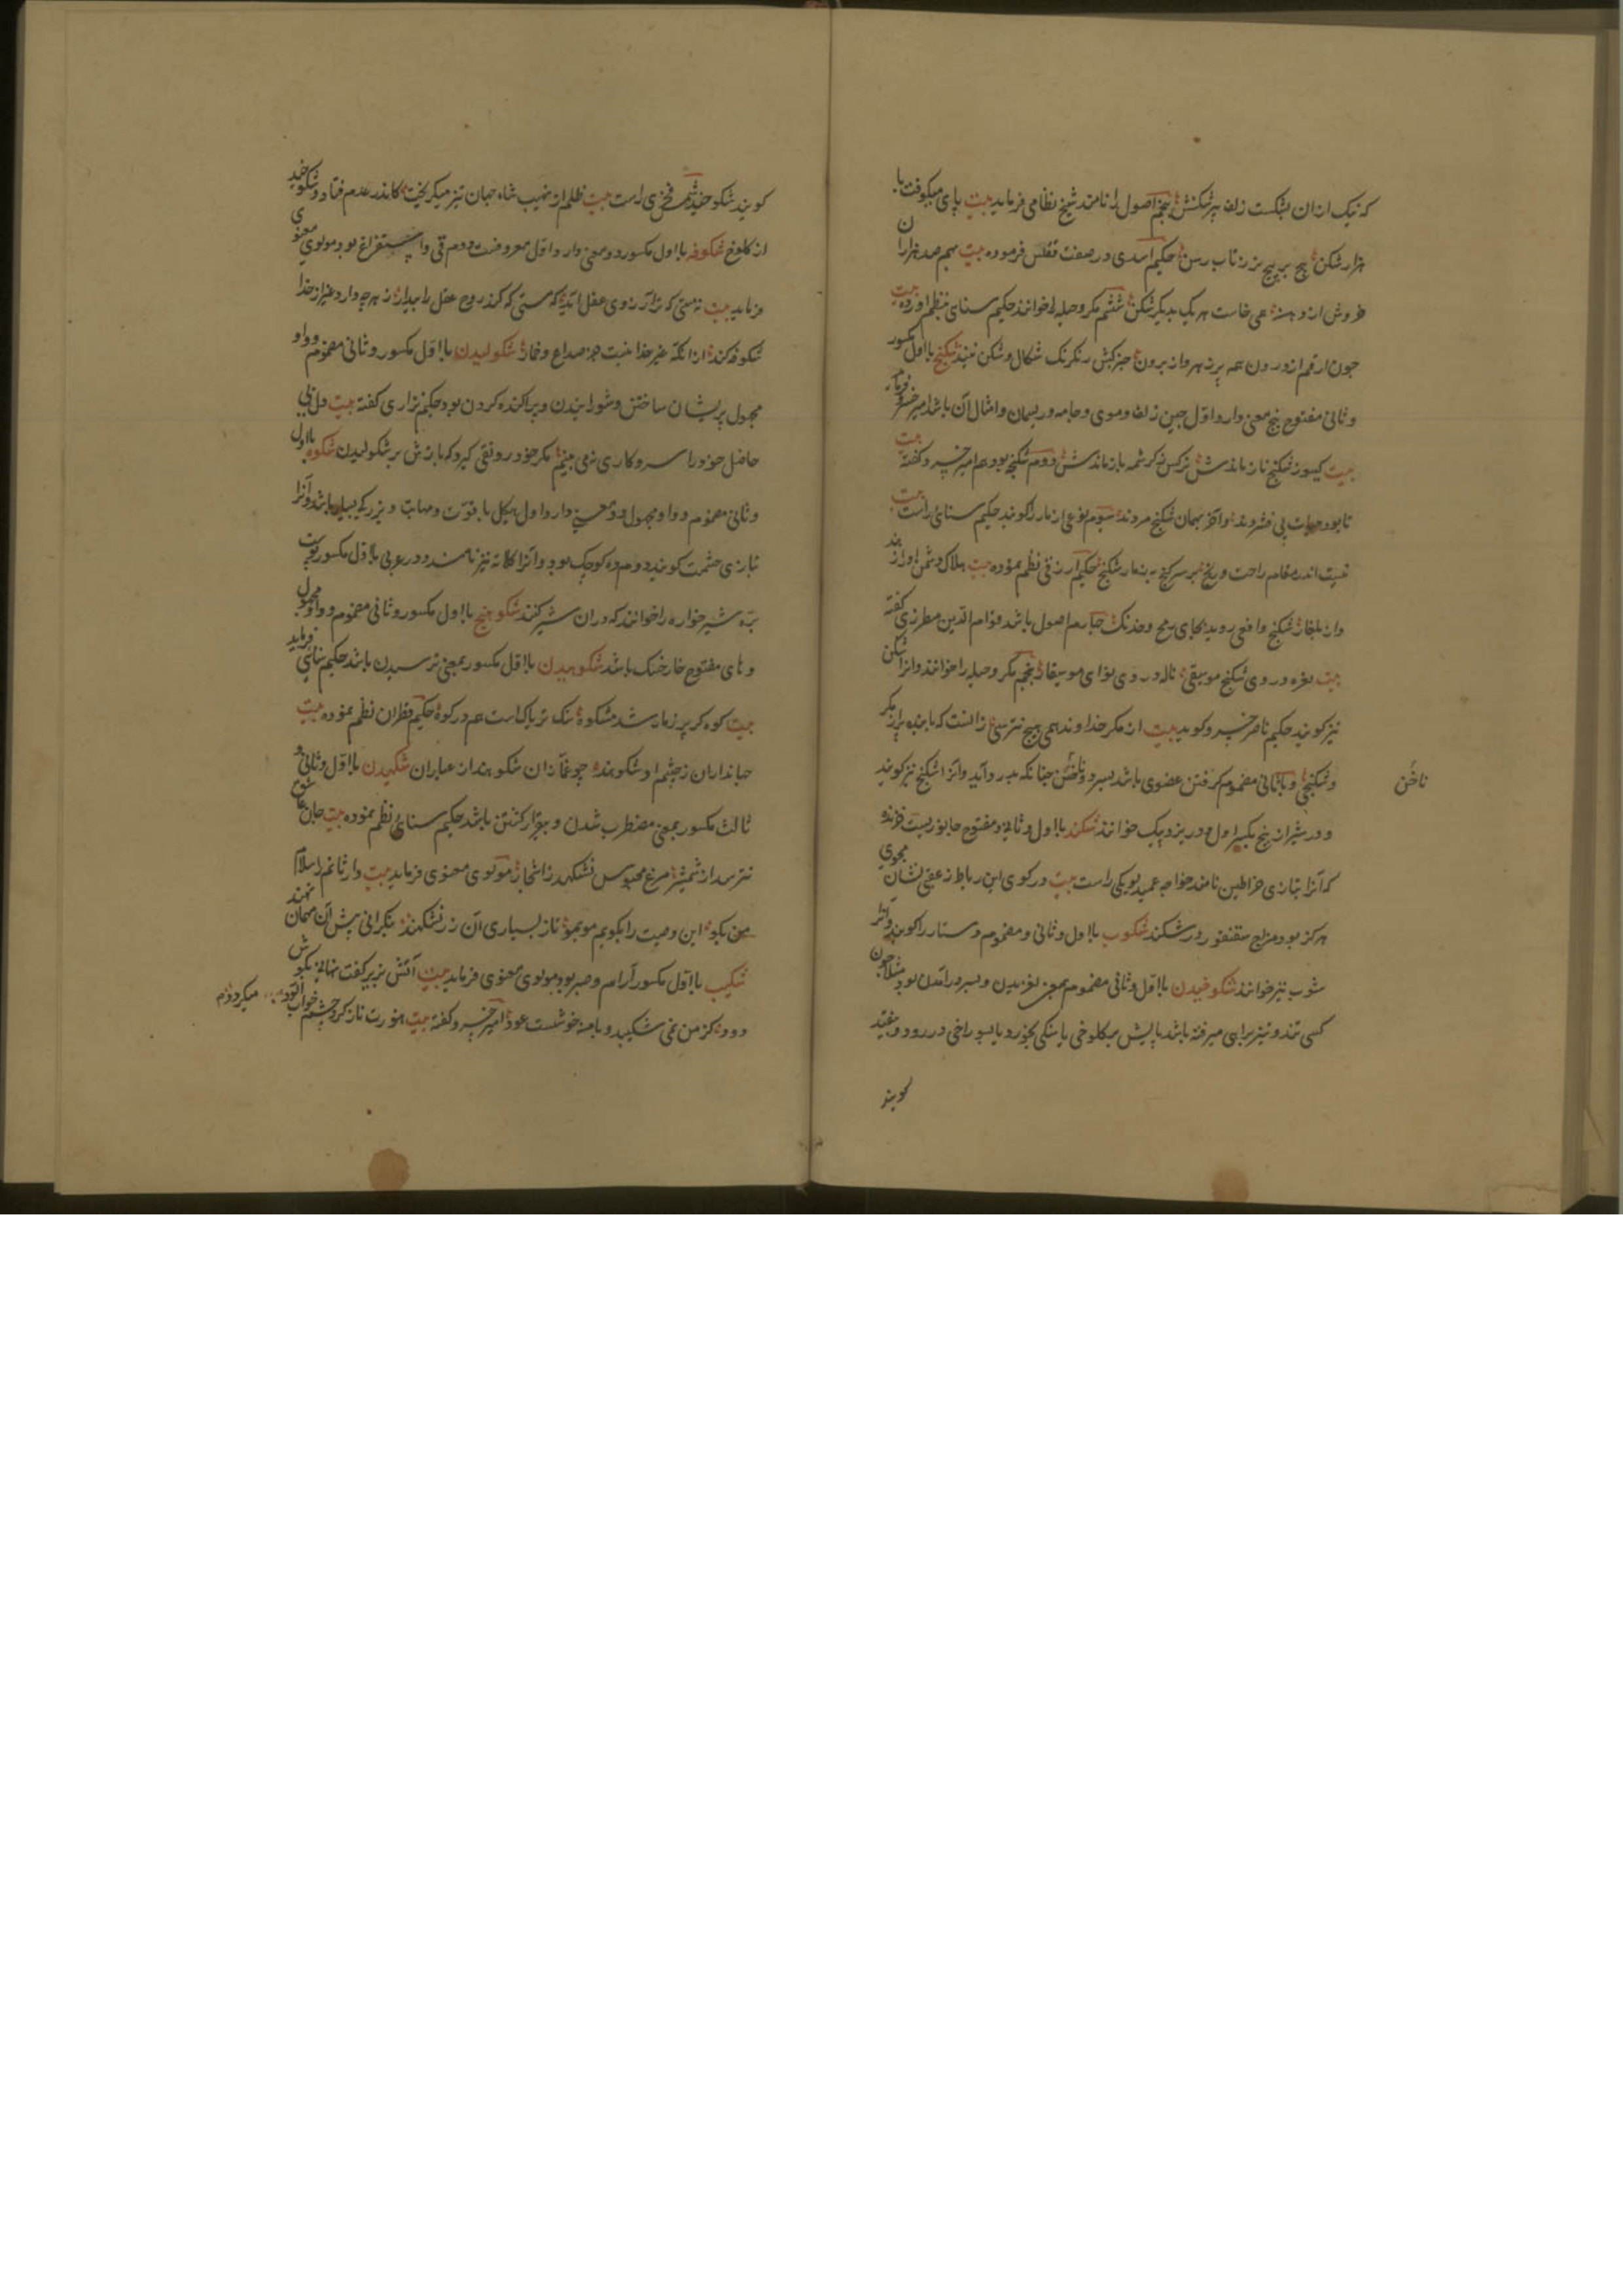 که نیک ازان بشکست زلف پرشکنش پنجم اصول را نامند شیخ نظامی فرماید بیت پای میکوفت با
هزار شکن پیچ بر پیچ تر ز تاب رسن حکیم اسدی در صفت ققنس فرموده بیت بهم صد هزاران
خروش از دهن همی خاست هر یک بدیگر شکن ششم مکر و حیله را خوانند حکیم سنای بنظم آورده بیت
چون ارقم از درون همه پرزهر و از برون جز کبش رنگرنگ شکال و شکن نیند شکنج با اول مکسور
و ثانی مفتوح پنج معنی دارد اول چین زلف و موی و جامه و ریسمان و امثال آن باشد امیر خسرو فرماید
بیت گیسو ز شکنج ناز ماندش نرگس ز کرشمه باز ماندش دوم شکنجه بود هم امیر خسرو گفته بیت
تا بود پی فشردند و آخر بهمان شکنج مردند سیوم نوعی از مار را گویند حکیم سنائی راست بیت
نیست اندر مقام راحت و رنج بر سر گنج به ز مار شکنج حکیم ازرقی نظم نموده بیت هلاک دشمن او را ز بید
و از بلغار شکنج و افعی روید بجای رمح و خدنگ چهارم اصول باشد قوام الدین مطرزی گفته
بیت نعره در وی شکنج موسیقی ناله در وی نوای موسیقار پنجم مکر و حیله را خوانند و آنرا شکن
نیز گویند حکیم ناصر خسرو گوید بیت از مکر خداوند همی هیچ نترسی زانست که با بنده پر از مکر
و شکنجی و با ثانی مضموم گرفتن عضوی باشد بسر دو ناخن چنانکه بدرد آید و آنرا اشکنج نیز گویند
ناخن
و در شیراز پنج بکسر اول و در یزد پیک خوانند شکند با اول و ثانی مفتوح جانوریست خزنده
که آنرا بتازی خراطین نامند خواجه عمید لویکی راست بیت در کوی این رباط ز عقبی نشان مجوی
هرگز بود مزاج سقنقور در شکند شکوب با اول و ثانی مضموم دستار را گویند و آنرا
شوب نیز خوانند شکوخیدن با اول و ثانی مضموم بمعنی لغزیدن و بسر درآمدن بود مثلا چون
کسی تند و تیز براهی میرفته باشد پایش بر کلوخی یا سنگی بخورد یا بسوراخی در رود و بیفتد
گویند
گویند شکوخید شمس فخری راست بیت ظلم از نهیب شاه جهان تیز میگریخت کاندر عدم فتاد و شکوخید
از کلوخ شکوفه با اول مکسور دو معنی دارد اول معروفست دوم قی و استفراغ بود مولوی معنوی
فرماید بیت نه مستی که ترا آرزوی عقل آید که مستی که کند روح عقل را بیدار ز هرچه دارد غیر از خدا
شکوفه کند از آنکه غیر خدا نیست جز صداع و خمار شکولیدن با اول مکسور و ثانی مضموم و واو
مجهول پریشان ساختن و شورانیدن و پراکنده کردن بود حکیم نزاری گفته بیت دل بی
حاصل خود را سر و کاری نمی بینم مگر خود رونقی گیرد که بازش بر شکولیدن شکوه با اول
و ثانی مضموم و واو مجهول دو معنی دارد اول هیکل با قوت و مهابت و بزرگی بسیار باشد و آنرا
بتازی حشمت گویند دوم ده کوچک بود و آنرا کلاته نیز نامند و در عربی با اول مکسور پوست
بره شیرخواره را خوانند که در آن شیر کنند شکوهنج با اول مکسور و ثانی مضموم و واو مجهول
و های مفتوح خار خسک باشد شکوهیدن با اول مکسور بمعنی ترسیدن باشد حکیم سنائی فرماید
بیت کوه گر پر ز مار شد مشکوه سنگ تریاکست هم در کوه حکیم قطران نظم نموده بیت
جهانداران ز چشم او شکوهنده چو غمازان شکوهند از عیاران شکهیدن با اول و ثانی و
ثالث مکسور بمعنی مضطرب شدن و بیقرار گشتن باشد حکیم سنائی نظم نموده بیت جان عاشق
نترسد از شمشیر مرغ محبوس نشکهد ز اشجار مولوی معنوی فرماید بیت وارثانم را سلام
من بگو این وصیت را بگویم موبمو تا ز بسیاری آن زر نشکهند بگرانی پیش آن مهمان نهند
شکیب با اول مکسور آرام و صبر بود مولوی معنوی فرماید بیت آتش بزیر گفت نهانی بگوش
دود کز من نمی شکیبد و با منه خوشست عود امیر خسرو گفته بیت خورت ناز کرد چشم خواب آلود میکردم